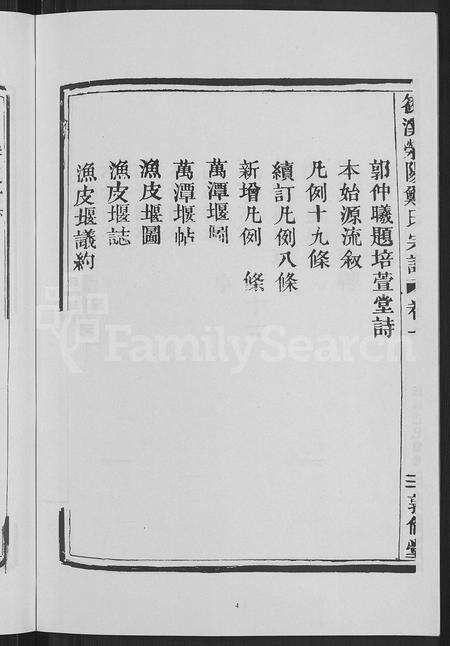 滎陽鄭氏宗譜 卷一 三 敦倫堂
郭仲曦題培萱堂詩
本始源流敘
凡例十九條
續訂凡例八條
新增凡例 條
萬潭堰圖
萬潭堰帖
漁皮堰圖
漁皮堰誌
漁皮堰議約
FamilySearch
4